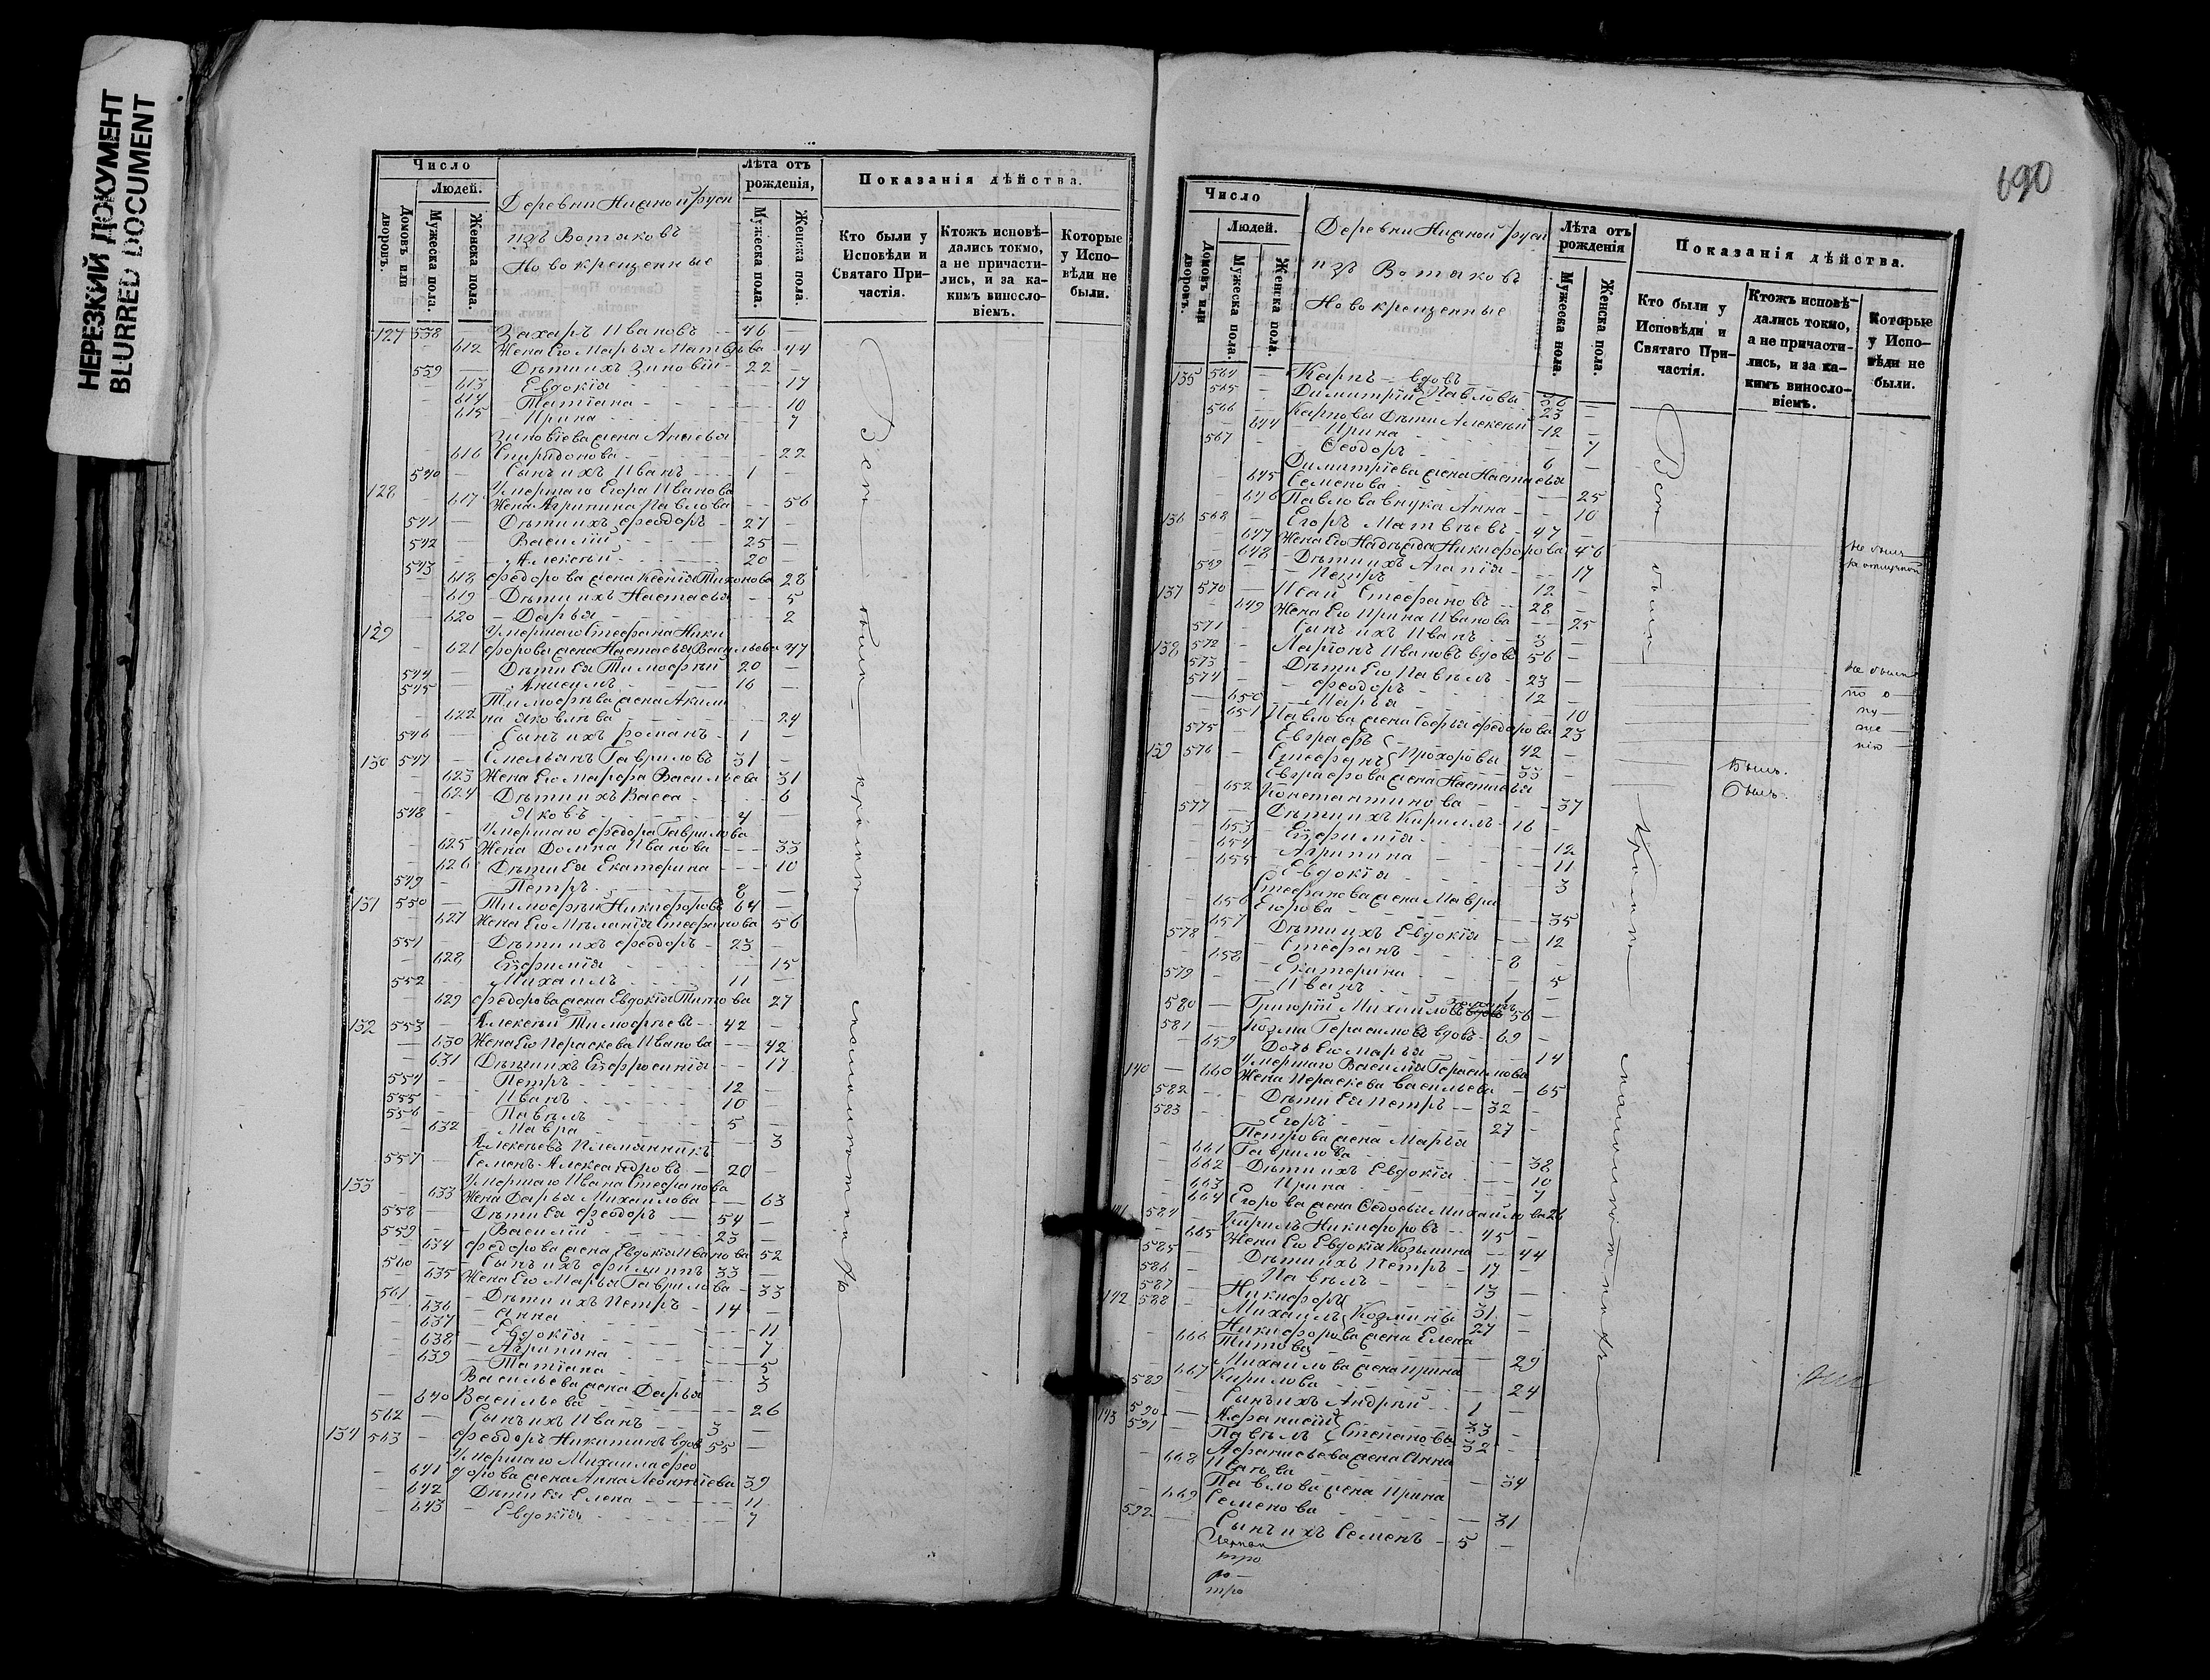 НЕРЕЗКИЙ ДОКУМЕНТ
BLURRED DOCUMENT
Число
Людей.
Домовъ или дворовъ.
Мужеска пола.
Женска пола.
Деревни Нижной Руси
изъ Вотяковъ
Новокрещенные
Лѣта отъ рожденія,
Мужеска пола.
Женска пола.
Показанія дѣйства.
Кто были у Исповѣди и Святаго Причастія.
Ктожъ исповѣдались токмо, а не причастились, и за какимъ винословіемъ.
Которые у Исповѣди не были.
127 538 — Захаръ Ивановъ — 46 —
612 Жена Его Марья Матвѣева — 44
539 — Дѣти ихъ Зиновій — 22 —
613 Евдокія — 17
614 Татіана — 10
615 Ирина — 7
Зиновіева жена
616 Спиридонова — 22
540 — Сынъ ихъ Иванъ — 1 —
128 Умершаго Егора Иванова
617 Жена Агрипина Павлова — 56
541 — Дѣти ихъ Феодоръ — 27 —
542 — Василій — 25 —
543 — Алексѣй — 20 —
618 Федорова жена Ксенія Тихонова 28
619 Дѣти ихъ Настасья — 5
620 — Дарья — 2
129 Умершаго Стефана Ники
621 форова жена Настасья Васильева 47
544 — Дѣти Ея Тимофей 20 —
545 — Анисимъ — 16 —
Тимофѣева жена Акили
622 на Яковлева — 24
546 — Сынъ ихъ Романъ — 1 —
130 547 — Емельянъ Гавриловъ 31 —
623 Жена Его Марфа Васильева 31
624 Дѣти ихъ Васса — 6
548 — Яковъ — 4 —
Умершаго Федора Гаврилова
625 Жена Домна Иванова — 33
626 Дѣти Ея Екатерина — 10
549 — Петръ — 8 —
131 550 — Тимофей Никифоровъ 64 —
627 Жена Его Меланія Стефанова 56
551 — Дѣти ихъ Феодоръ — 23 —
628 Евфимія — 15
552 — Михаилъ — 11 —
629 Федорова жена Евдокія Титова 27
132 553 — Алексѣй Тимофѣевъ — 42 —
630 Жена Его Пераскева Иванова — 42
631 Дѣти ихъ Евфросинія — 17
554 — Петръ — 12 —
555 — Иванъ — 10 —
556 — Павелъ — 5 —
632 Мавра — 3
Алексѣевъ Племянникъ
557 — Семенъ Александровъ — 20 —
133 Умершаго Ивана Стефанова
633 Жена Дарья Михаилова — 63
558 — Дѣти Ея Феодоръ — 54 —
559 — Василій — 23 —
634 Федорова жена Евдокія Иванова 52
560 — Сынъ ихъ Филиппъ 33 —
635 Жена Его Марья Гаврилова — 33
561 — Дѣти ихъ Петръ — 14 —
636 — Анна — 11
637 — Евдокія — 7
638 — Агрипина — 5
639 — Татіана — 3
Васильева жена Дарья
640 Васильева — 26
562 — Сынъ ихъ Иванъ — 3 —
134 563 — Феодоръ Никитинъ вдовъ 55 —
Умершаго Михаила Фео
641 дорова жена Анна Леонтіева 39
642 Дѣти Ея Елена — 11
643 — Евдокія — 7
Всѣ были кромѣ малолѣтныхъ
690
Число
Людей.
Домовъ или дворовъ.
Мужеска пола.
Женска пола.
Деревни Нижной Руси
изъ Вотяковъ
Новокрещенные
Лѣта отъ рожденія
Мужеска пола.
Женска пола.
Показанія дѣйства.
Кто были у Исповѣди и Святаго Причастія.
Ктожъ исповѣдались токмо, а не причастились, и за какимъ винословіемъ.
Которые у Исповѣди не были.
135 564 — Карпъ — вдовъ
565 — Димитрій Павловы 36
566 — Карповы Дѣти Алексѣй 23 —
644 — Ирина — 12 —
567 — Феодоръ — 7
Димитріева жена Настасья 6 —
645 Семенова — 25
646 Павлова внука Анна — 10
136 568 — Егоръ Матвѣевъ — 47 —
647 Жена Его Надежда Никифорова 46
648 — Дѣти ихъ Агапія — 17
569 — Петръ — 12 —
137 570 — Исай Стефановъ — 28 —
649 Жена Его Ирина Иванова — 25
571 — Сынъ ихъ Иванъ — 3 —
138 572 — Ларіонъ Ивановъ вдовъ 56 —
573 — Дѣти Его Павелъ — 23 —
574 — Феодоръ — 12 —
650 — Марья — 10
651 Павлова жена Софья Федорова 23
575 — Евграфъ — 42 —
139 576 — Стефанъ Прохоровы 33 —
Евграфова жена Настасья
652 Константинова — 37
577 — Дѣти ихъ Кириллъ — 16 —
653 — Евфимія — 12
654 — Агрипина — 11
655 — Евдокія — 3
Стефанова жена Мавра
656 Егорова — 35
657 Дѣти ихъ Евдокія — 12
578 — Стефанъ — 8 —
658 — Екатерина — 5
579 — Иванъ — 1 —
580 — Григорій Михаиловъ 56 —
581 — Козма Герасимовъ вдовъ — 69 —
659 Дочь Его Марья — 14
140 Умершаго Василія Герасимова
660 Жена Пераскева Васильева — 65
582 — Дѣти Ея Петръ — 32 —
583 — Егоръ — 27 —
Петрова жена Марья
661 Гаврилова — 38
662 Дѣти ихъ Евдокія — 10
663 — Ирина — 7
664 Егорова жена Федосья Михайлова 26
141 584 — Кирилъ Никифоровъ — 45 —
665 Жена Его Евдокія Козьмина — 44
585 — Дѣти ихъ Петръ — 17 —
586 — Павелъ — 13 —
142 587 — Никифоръ 31 —
588 — Михаилъ Козмины 27 —
Никифорова жена Елена
666 Титова — 29
Михайлова жена Ирина
667 Кирилова — 24
589 — Сынъ ихъ Андрей — 1 —
143 590 — Афанасій 33 —
591 — Павелъ Степановы 32 —
Афанасьева жена Анна
668 — 34
Павлова жена Ирина
669 Семенова — 31
592 — Сынъ ихъ Семенъ — 5 —
тро
ро —
тро
Всѣ были кромѣ малолѣтныхъ
не былъ
за отлучкой
не были
по о
лу
ще
нію
Былъ.
Былъ.